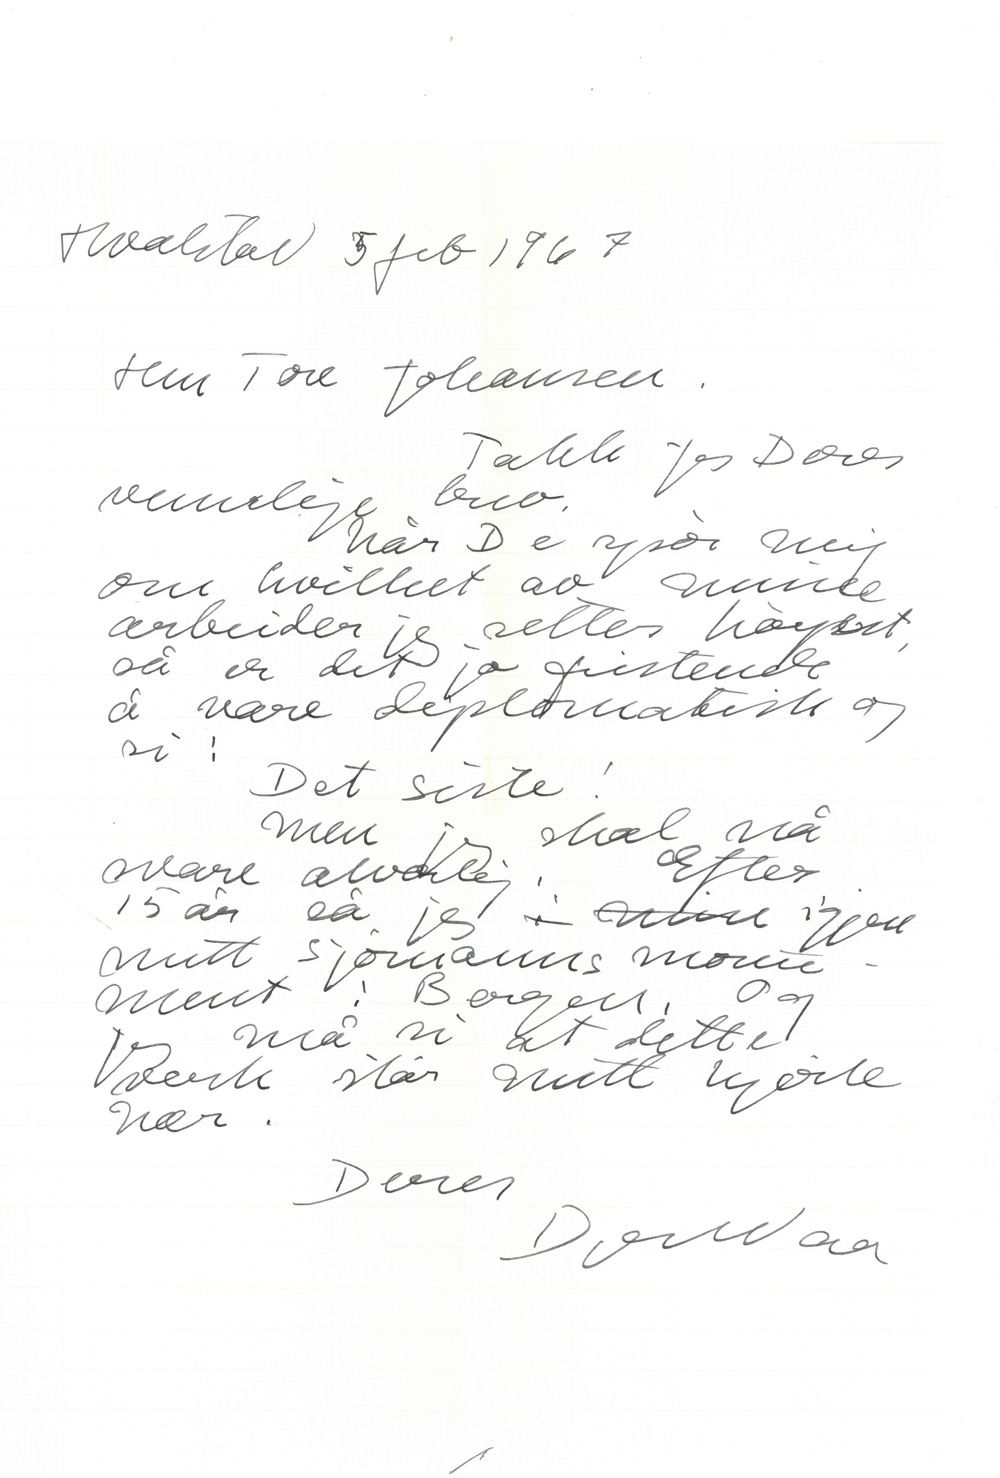 Hvalstad 5 feb 1967
Herr Tore Johansen.
Takk for Deres
vennlige brev.
Når De spør mig
om hvilket av mine
arbeider jeg setter høyest,
så er det jo fristende
å være diplomatisk og
si:
Det siste!
Men jeg skal nå
svare alvorlig. Efter
15 år så jeg i mine igjen
mitt sjømanns monu-
ment i Bergen. Og
jeg må si at dette
verk står mitt hjerte
nær.
Deres
Dyre Vaa